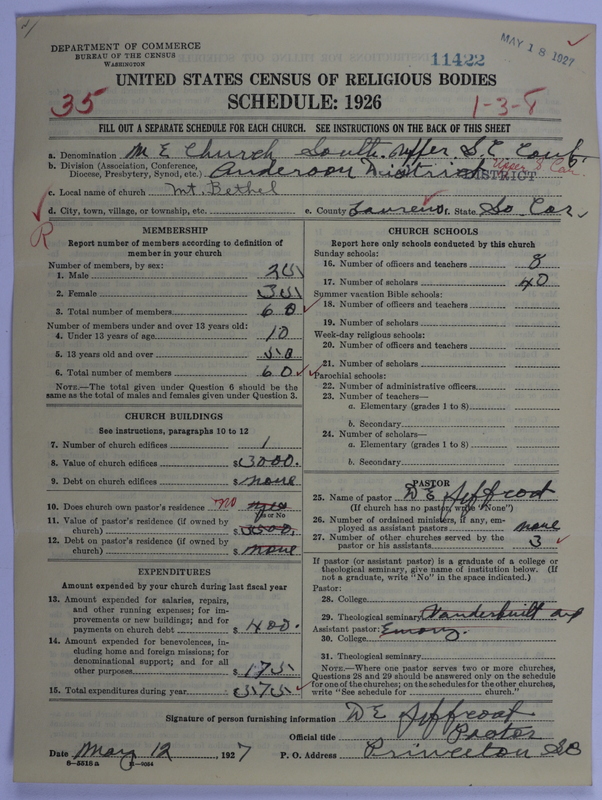 DEPARTMENT OF COMMERCE
BUREAU OF THE CENSUS
WASHINGTON
11422
MAY 18 1927
UNITED STATES CENSUS OF RELIGIOUS BODIES
35
SCHEDULE: 1926
1-3-8
FILL OUT A SEPARATE SCHEDULE FOR EACH CHURCH. SEE INSTRUCTIONS ON THE BACK OF THIS SHEET
a. Denomination M E Church South. Upper S. C. Conf.
b. Division (Association, Conference, Diocese, Presbytery, Synod, etc.) Anderson District Upper S Car. DISTRICT
c. Local name of church Mt. Bethel
d. City, town, village, or township, etc. e. County Laurens f. State So Car
R
MEMBERSHIP
Report number of members according to definition of member in your church
Number of members, by sex:
1. Male 25
2. Female 35
3. Total number of members 60
Number of members under and over 13 years old:
4. Under 13 years of age 10
5. 13 years old and over 50
6. Total number of members 60
NOTE.—The total given under Question 6 should be the same as the total of males and females given under Question 3.
CHURCH BUILDINGS
See instructions, paragraphs 10 to 12
7. Number of church edifices 1
8. Value of church edifices $3000.
9. Debt on church edifices $ none
10. Does church own pastor's residence no
Yes or No
11. Value of pastor's residence (if owned by church) $
12. Debt on pastor's residence (if owned by church) $ none
EXPENDITURES
Amount expended by your church during last fiscal year
13. Amount expended for salaries, repairs, and other running expenses; for improvements or new buildings; and for payments on church debt $ 400.
14. Amount expended for benevolences, including home and foreign missions; for denominational support; and for all other purposes $ 175
15. Total expenditures during year $ 575
CHURCH SCHOOLS
Report here only schools conducted by this church
Sunday schools:
16. Number of officers and teachers 8
17. Number of scholars 40
Summer vacation Bible schools:
18. Number of officers and teachers
19. Number of scholars
Week-day religious schools:
20. Number of officers and teachers
21. Number of scholars
Parochial schools:
22. Number of administrative officers
23. Number of teachers—
a. Elementary (grades 1 to 8)
b. Secondary
24. Number of scholars—
a. Elementary (grades 1 to 8)
b. Secondary
PASTOR
25. Name of pastor D E Jeffcoat
(If church has no pastor, write "None")
26. Number of ordained ministers, if any, employed as assistant pastors none
27. Number of other churches served by the pastor or his assistants 3
If pastor (or assistant pastor) is a graduate of a college or theological seminary, give name of institution below. (If not a graduate, write "No" in the space indicated.)
Pastor:
28. College
29. Theological seminary Vanderbuilt and
Assistant pastor: Emory.
30. College
31. Theological seminary
NOTE.—Where one pastor serves two or more churches, Questions 28 and 29 should be answered only on the schedule for one of the churches; on the schedules for the other churches, write "See schedule for church."
Signature of person furnishing information D E Jeffcoat
Official title Pastor
Date May 12 1927 P. O. Address Princeton SC